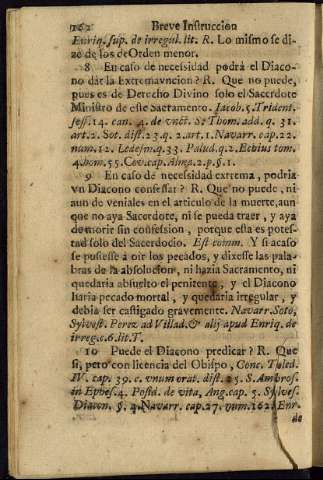 162 Breve Instruccion
Enriq. sup. de irregul. lit. R. Lo mismo se di-
ze de los de Orden menor.
8 En caso de necesidad podrá el Diaco-
no dàr la Extremavncion? R. Que no puede,
pues es de Derecho Divino solo el Sacerdote
Ministro de este Sacramento. Iacob. 5. Trident.
sess. 14. can. 4. de vnct. S. Thom. add. q. 31.
art. 2. Sot. dist. 23. q. 2. art. 1. Navarr. cap. 22.
num. 12. Ledesm. q. 33. Palud. q. 2. Echius tom.
4. hom. 55. Cov. cap. Alma. 2. p. §. 1.
9 En caso de necessidad extrema, podria
vn Diacono confessar? R. Que no puede, ni
aun de veniales en el articulo de la muerte, aun
que no aya Sacerdote, ni se pueda traer, y aya
de morir sin confession, porque esta es potes-
tad solo del Sacerdocio. Est comm. Y si acaso
se pusiesse à oir los pecados, y dixesse las pala-
bras de la absolucion, ni hazia Sacramento, ni
quedaria absuelto el penitente, y el Diacono
haria pecado mortal, y quedaria irregular, y
debia ser castigado gravemente. Navarr. Soto,
Sylvest. Perez ad Villad. & alij apud Enriq. de
irreg. c. 6. lit. T.
10 Puede el Diacono predicar? R. Que
si, pero con licencia del Obispo, Conc. Toled.
IV. cap. 39. c. vnum orat. dist. 25. S. Ambros.
in Ephes. 4. Posid. de vita, Aug. cap. 5. Sylves.
Diacon. §. 4. Navarr. cap. 27. num. 162. Enr-
de